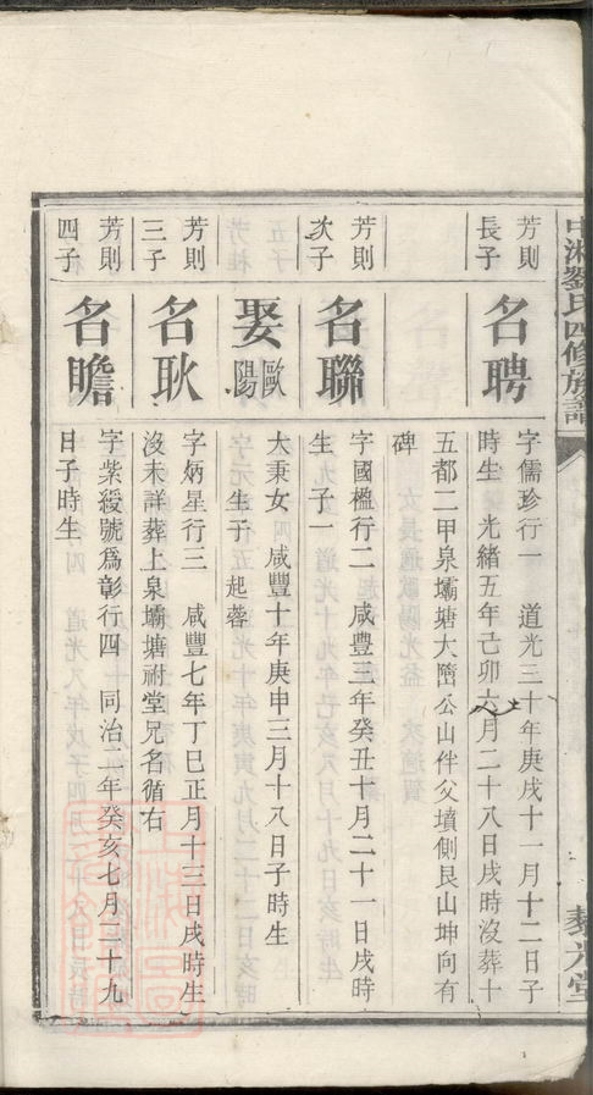 中湘劉氏四修族譜
芳則
長子
名聘
字儒珍行一　道光三十年庚戌十一月十二日子
時生　光緒五年己卯六月二十八日戌時沒葬十
五都二甲泉壩塘大嶝公山伴父墳側艮山坤向有
碑
芳則
次子
名聯
字國楹行二　咸豐三年癸丑十月二十一日戌時
生　子一
娶歐陽
大秉女　咸豐十年庚申三月十八日子時生
生子　起蓉
芳則
三子
名耿
字炳星行三　咸豐七年丁巳正月十三日戌時生
沒未詳葬上泉壩塘祔堂兄名循右
芳則
四子
名瞻
字紫綬號為彰行四　同治二年癸亥七月二十九
日子時生
藜光堂